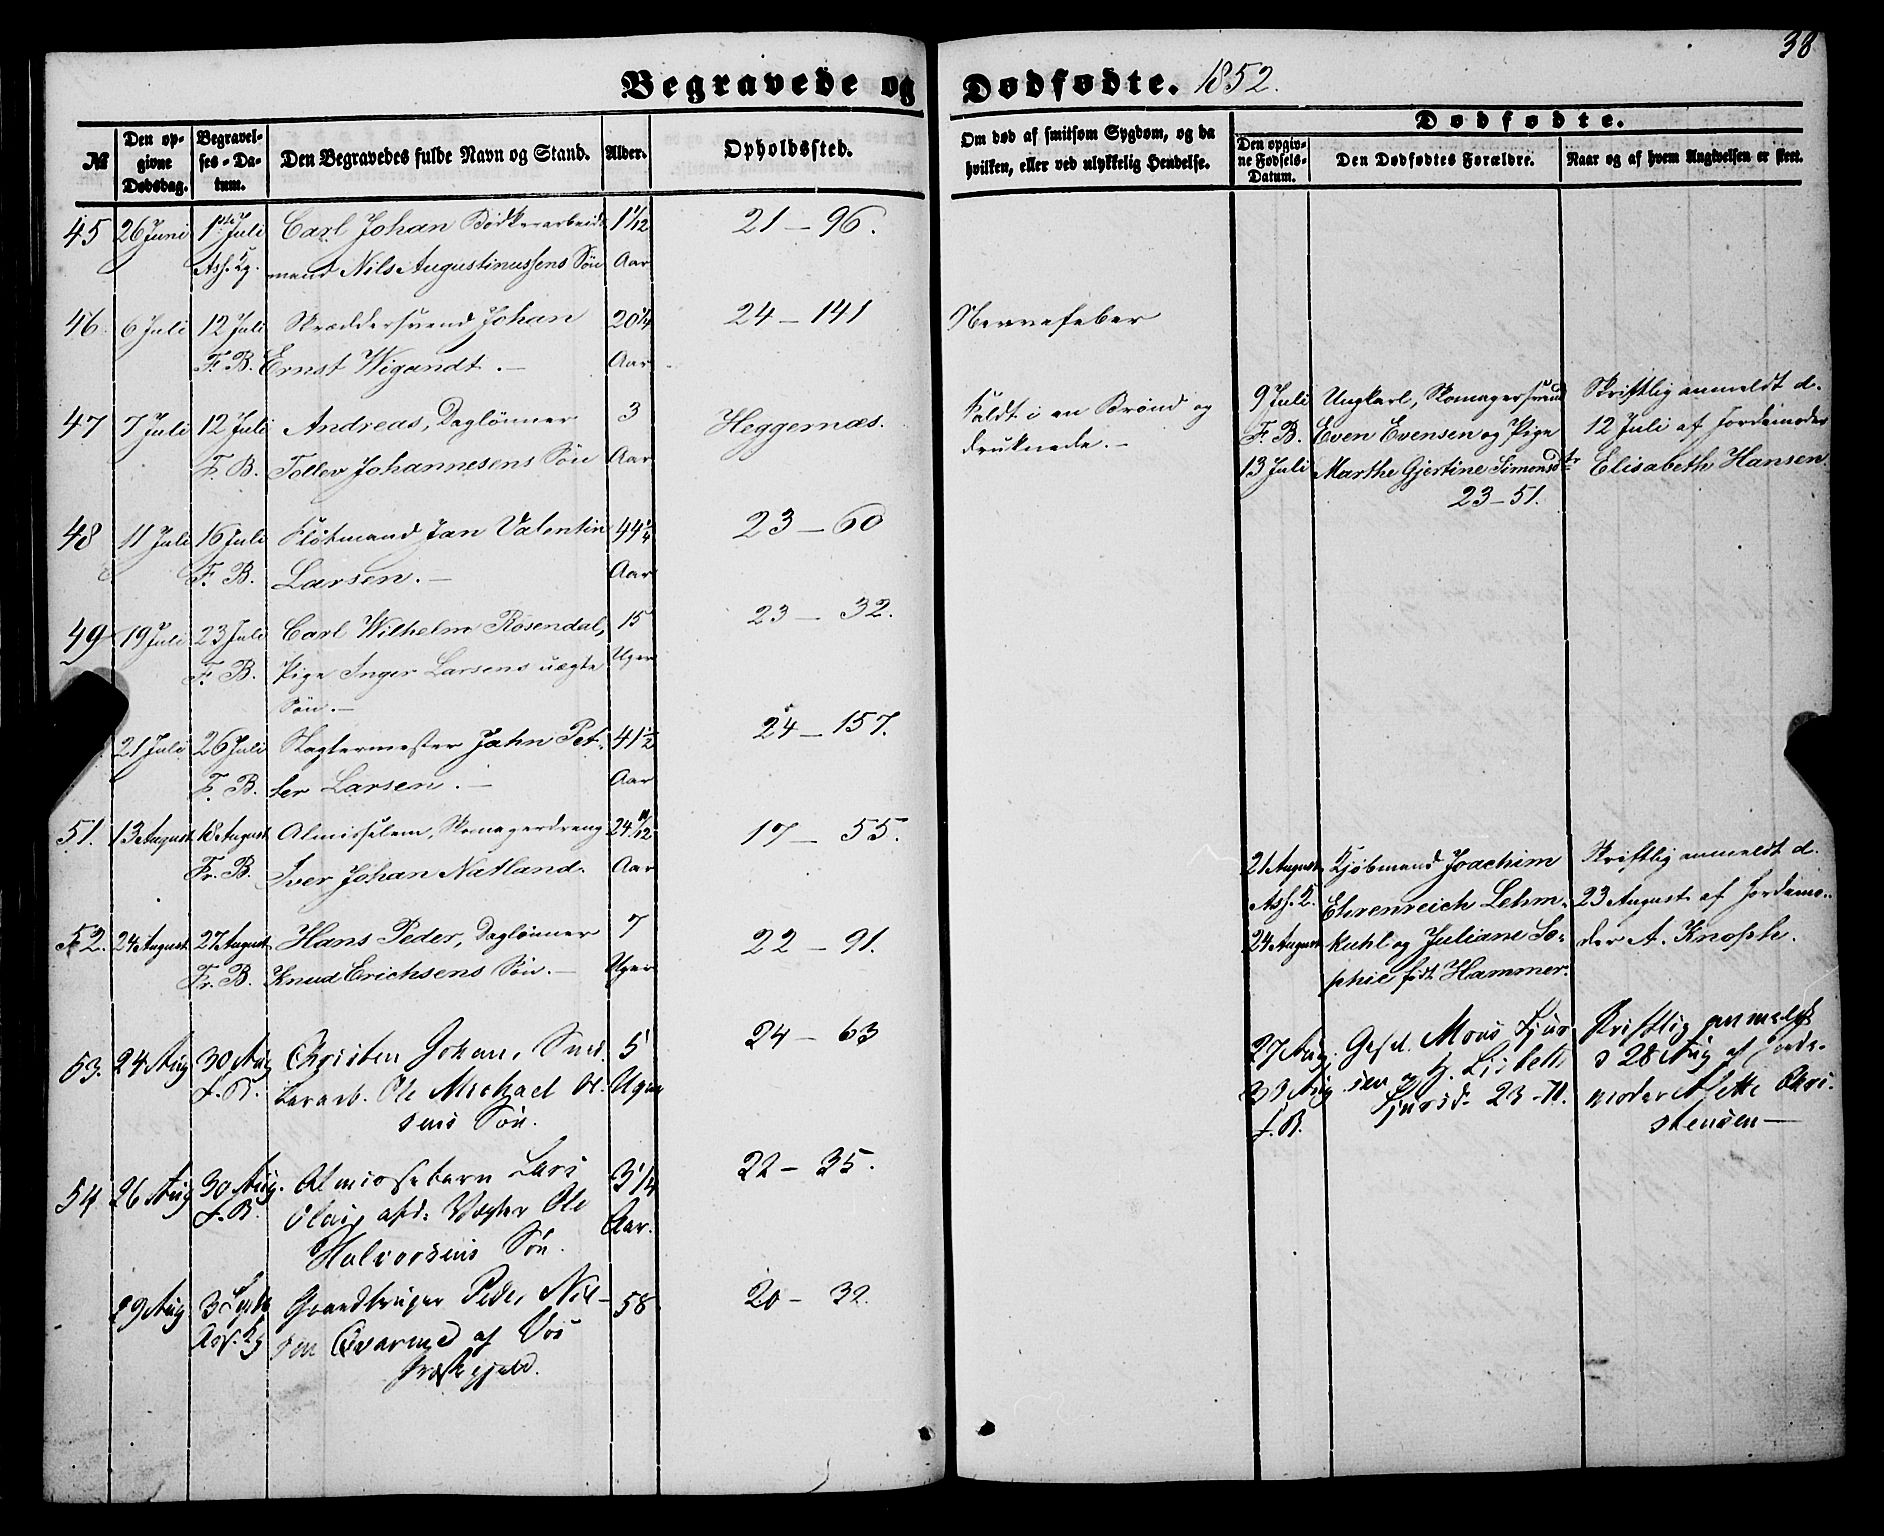 38
Begravede og Dødfødte. 1852.
№
Den opgivne Dødsdag.
Begravelses-Datum.
Den Begravedes fulde Navn og Stand.
Alder.
Opholdssted.
Om død af smitsom Sygdom, og da hvilken, eller ved ulykkelig Hendelse.
Dødfødte.
Den opgivne Fødsels-Datum.
Den Dødfødtes Forældre.
Naar og af hvem Angivelsen er skeet.
45 26 Juni 1ste Juli Carl Johan Bödkerarbeids 1 1/12 21 – 96.
Ass. Kg. mand Nils Augustinussens Sön Aar
46. 6 Juli 12 Juli Skræddersvend Johan 20 1/4 24 – 141 Nervefeber
F. B. Ernst Wigandt. – Aar
47 7 Juli 12 Juli Andreas, Daglönner 3 Heggernæs. Faldt i en Brönd og
F. B. Tollev Johannesens Sön Aar druknede. –
9 Juli Ungkarl, Skomagersvend Skriftlig anmeldt d.
F. B. Even Evensen og Pige 12 Juli af Jordemoder
13 Juli Marthe Gjertine Simonsdtr Elisabeth Hansen.
23 – 51.
48 11 Juli 16 Juli Flötmand Jan Valentin 44 1/4 23 – 60
F. B. Larsen. – Aar
49 19 Juli 23 Juli Carl Wilhelm Rosendal, 15 23 – 32.
F. B. Pige Inger Larsens uægte Uger
Sön. –
21 Juli 26 Juli Slagtermester Jahn Pet- 41 1/2 24 – 157.
F. B. ter Larsen. – Aar
51. 13 August 18 August Almisselem, Skomagerdreng 24 11/12 17 – 55.
Fr. B. Iver Johan Natland. Aar
21 August Kjöbmand Joachim Skriftlig anmeldt d.
Ass. K. Ehrenreich Lehm- 23 August af Jordemo-
24 August kuhl og Juliane So- der A. Knoph.
phie födt Hammer.
52. 24 August 27 August Hans Peder, Daglönner 7 22 – 91.
Fr. B. Knud Erichsens Sön. – Uger
53. 24 Aug 30 Aug Christen Johan, 5 24 – 63
F. B. kerarb. Ole Michael Ol- Uger
sens Sön.
27 Aug. Gesel. Mons Sjur- Skriftlig anmeldt
30 Aug sen og H. Lisbeth d 28 Aug af Jorde-
F. B. Sjursd. 23 – 71. moder Mette Chri-
stensen –
54 26 Aug 30 Aug. Almissebarn Lars 3 1/4 22 – 35.
F. B. Olai, afd. Vægter Ole Aar.
Halvorsens Sön.
29 Aug 3 Septr Grandbruger Peder Niel- 58 20 – 32.
Ass. Kg sen Qvarme af Vos
Præstegjeld.